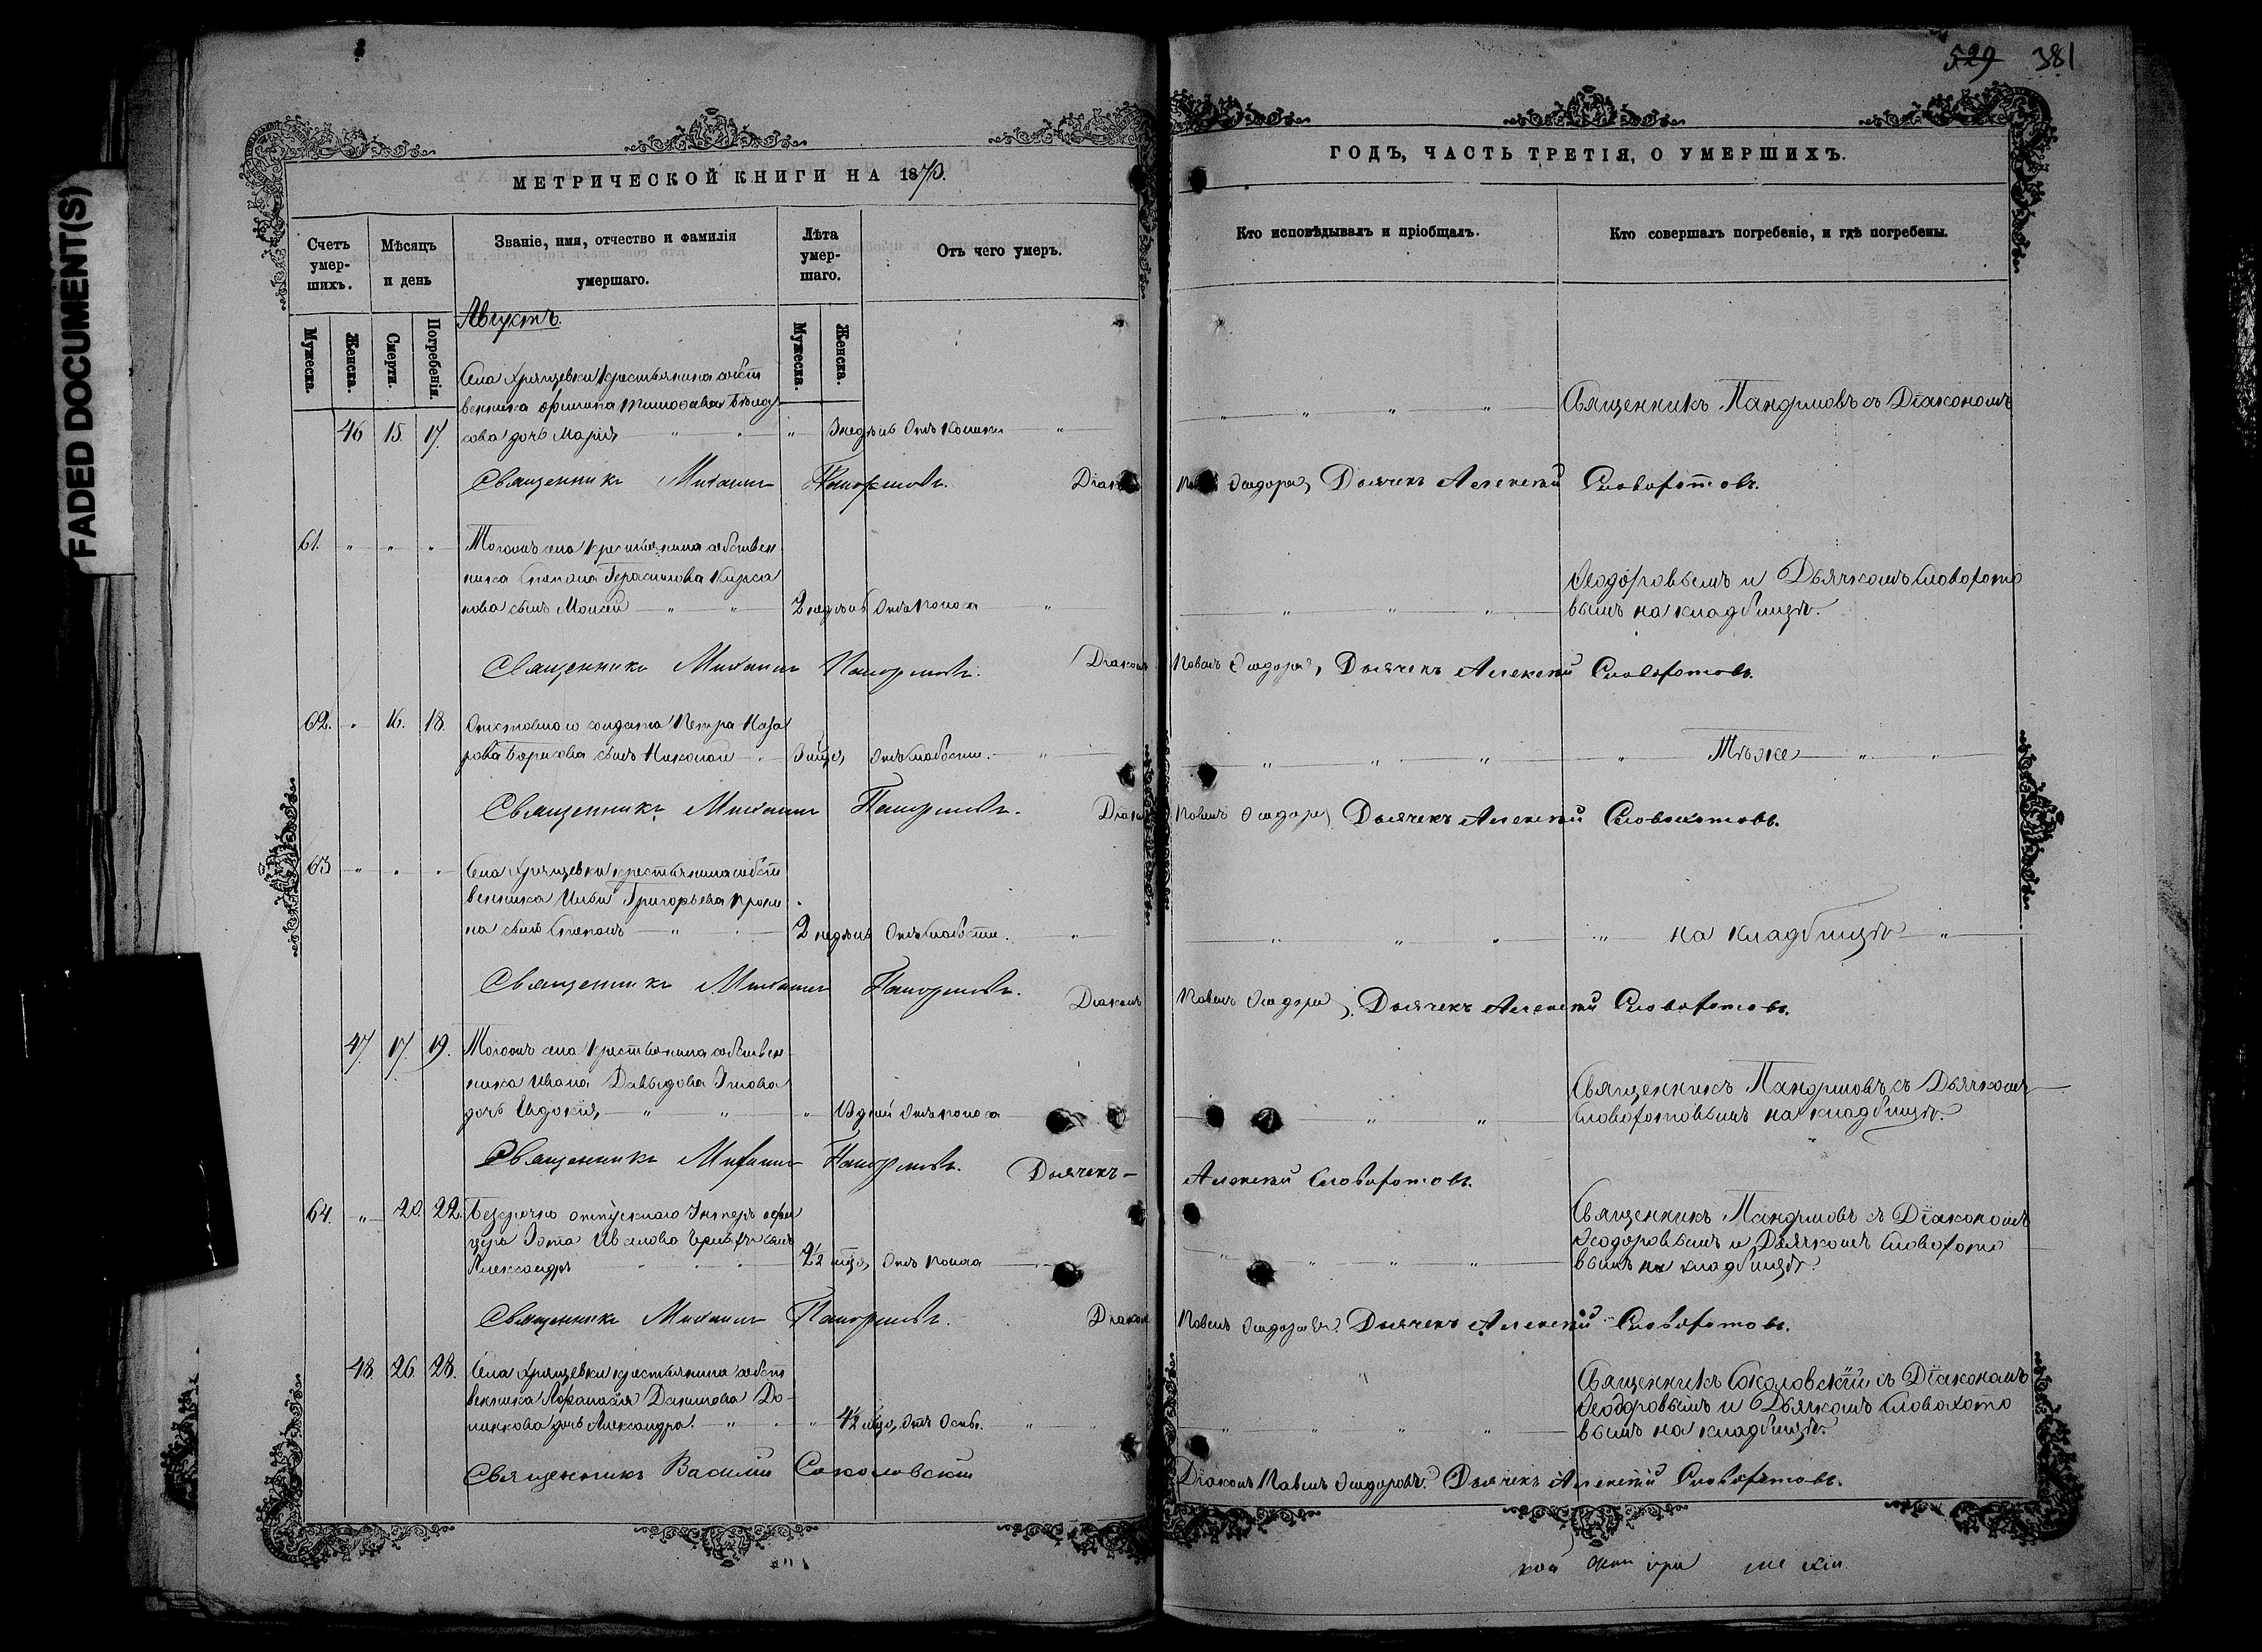 FADED DOCUMENT(S)
529 381
МЕТРИЧЕСКОЙ КНИГИ НА 1870.
Счетъ умер-шихъ.
Мѣсяцъ и день
Званіе, имя, отчество и фамилія умершаго.
Лѣта умер-шаго.
Отъ чего умеръ.
Мужеска.
Женска.
Смерти.
Погребенія.
Мужеска.
Женска.
ГОДЪ, ЧАСТЬ ТРЕТІЯ, О УМЕРШИХЪ.
Кто исповѣдывалъ и пріобщалъ.
Кто совершалъ погребеніе, и гдѣ погребены.
Августъ.
Села Хрящевки крестьянина собст
венника
46 15. 17. дочь Марія 3 недѣль
Священникъ Панормовъ съ Діакономъ
Священникъ Михаилъ Панормовъ. Діаконъ
Дьячекъ Алексѣй Словохотовъ.
61. Тогожъ села крестьянина собствен
ника Степана Герасимова Кирса
нова сынъ Моисей 2 недѣль Отъ поноса
Ѳеодоровымъ и Дьячкомъ Словохото
вымъ на кладбищѣ.
Священникъ Михаилъ Панормовъ. Діаконъ
Павелъ Дьячекъ Алексѣй Словохотовъ.
62. 16. 18. Отставнаго солдата Петра Наза
рова Борисова сынъ Николай Отъ слабости.
Тѣже
Священникъ Михаилъ Панормовъ. Діаконъ
Павелъ Дьячекъ Алексѣй Словохотовъ.
63 Села Хрящевки крестьянина собст
венника Ильи Григорьева
на сынъ Степанъ 2 недѣль Отъ слабости.
на кладбищѣ
Священникъ Михаилъ Панормовъ. Діаконъ
Павелъ Дьячекъ Алексѣй Словохотовъ.
47. 17. 19. Тогожъ села крестьянина собствен
ника Ивана Давыдова
дочь Евдокія дней Отъ поноса
Священникъ Панормовъ съ Дьячкомъ
Словохотовымъ на кладбищѣ.
Священникъ Михаилъ Панормовъ. Дьячекъ
Алексѣй Словохотовъ.
64. 20. 22. Безсрочно отпускнаго Унтеръ офи
цера Иванова сынъ
Александръ 2½ Отъ поноса
Священникъ Панормовъ съ Діакономъ
Ѳеодоровымъ и Дьячкомъ Словохото
вымъ на кладбищѣ.
Священникъ Михаилъ Панормовъ. Діаконъ
Павелъ Дьячекъ Алексѣй Словохотовъ.
48. 26. 28. Села Хрящевки крестьянина собст
венника Данилова
дочь Александра. 4½ Отъ Оспы.
Священникъ Соколовскій съ Діакономъ
Ѳеодоровымъ и Дьячкомъ Словохото
вымъ на кладбищѣ.
Священникъ Василій Соколовскій
Діаконъ Павелъ Ѳеодоровъ. Дьячекъ Алексѣй Словохотовъ.